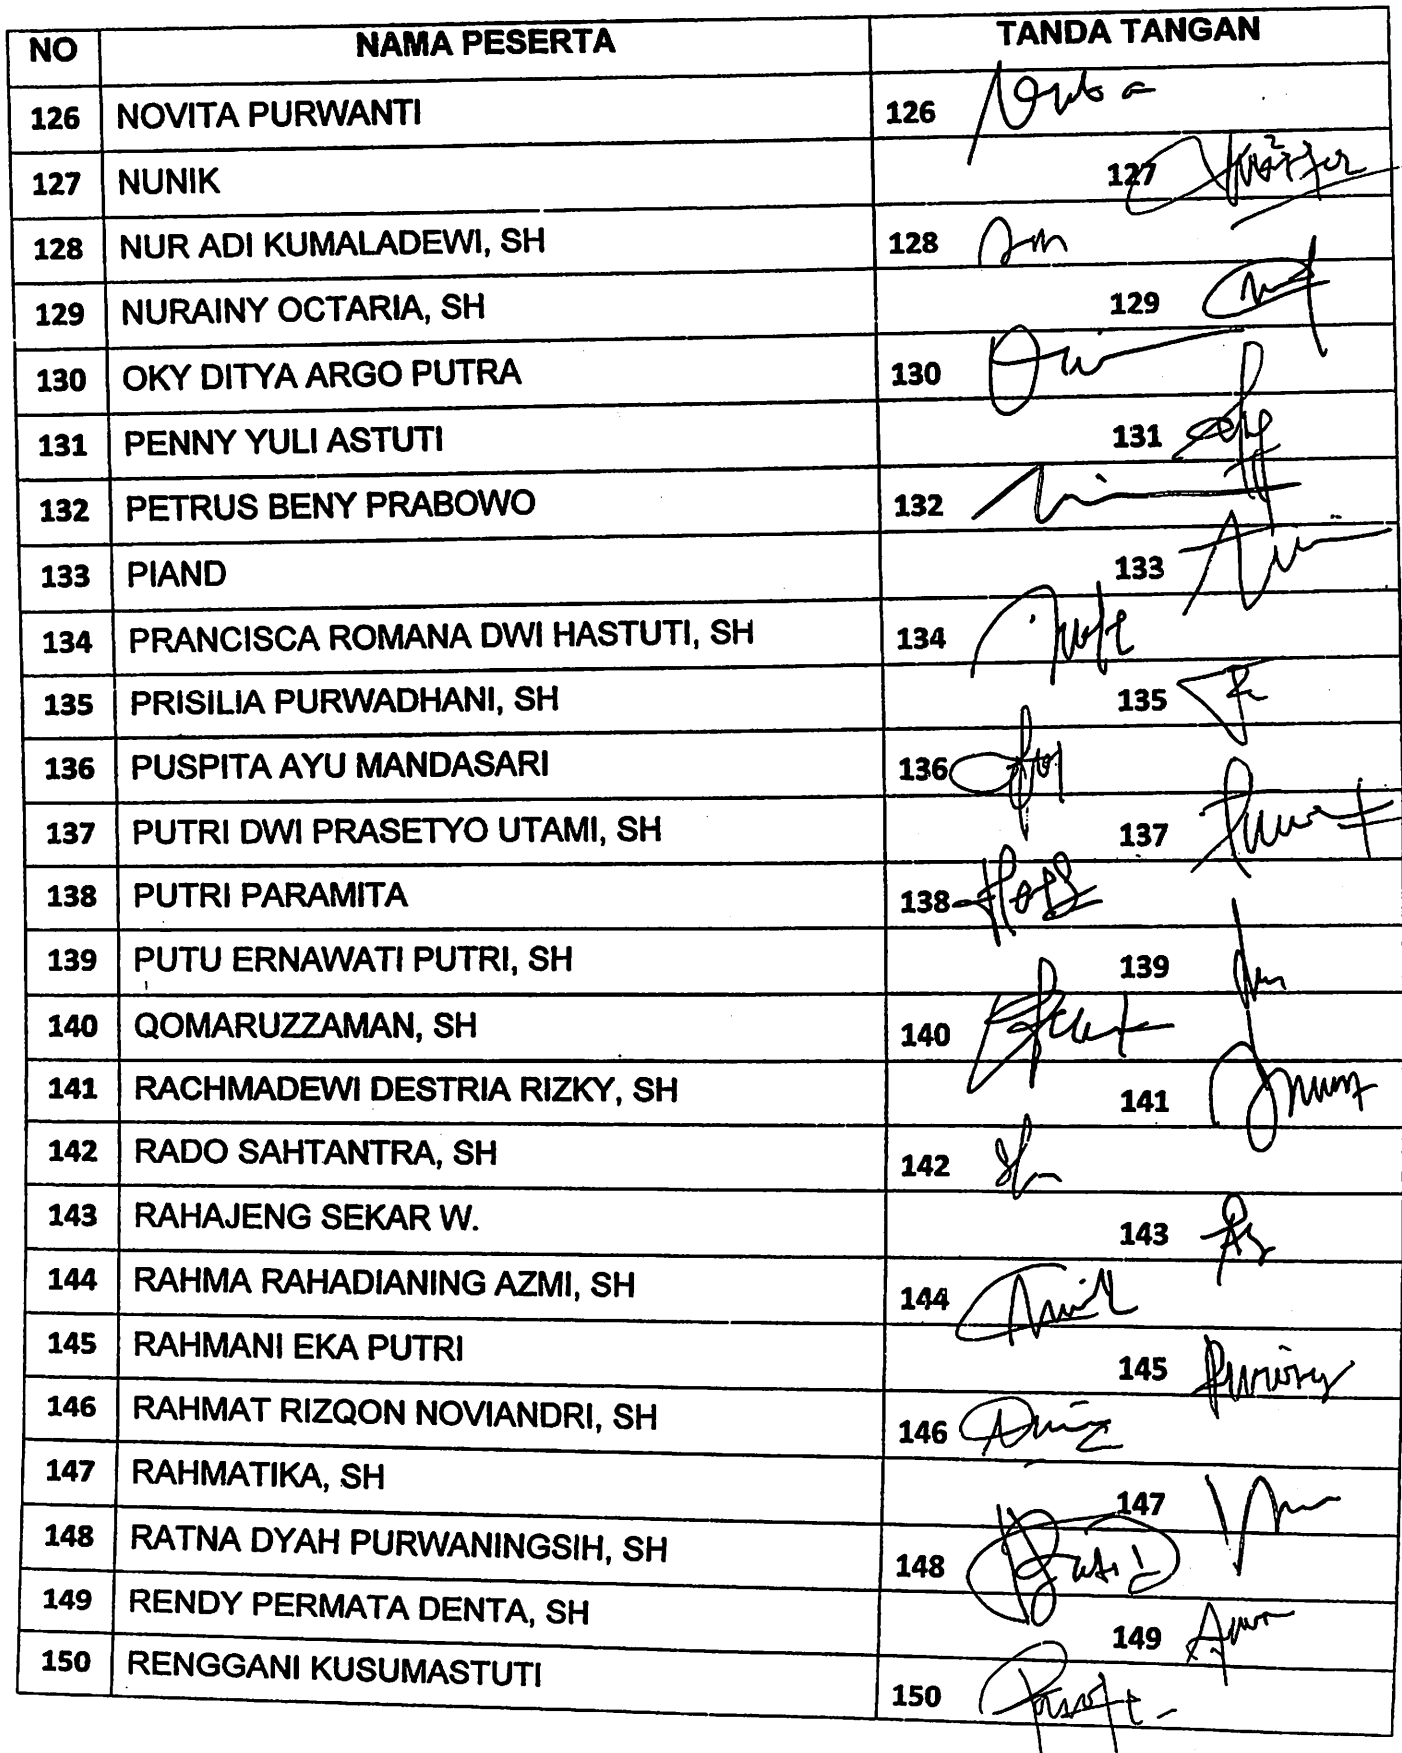 NO NAMA PESERTA TANDA TANGAN
126 NOVITA PURWANTI 126
127 NUNIK 127
128 NUR ADI KUMALADEWI, SH 128
129 NURAINY OCTARIA, SH 129
130 OKY DITYA ARGO PUTRA 130
131 PENNY YULI ASTUTI 131
132 PETRUS BENY PRABOWO 132
133 PIAND 133
134 PRANCISCA ROMANA DWI HASTUTI, SH 134
135 PRISILIA PURWADHANI, SH 135
136 PUSPITA AYU MANDASARI 136
137 PUTRI DWI PRASETYO UTAMI, SH 137
138 PUTRI PARAMITA 138
139 PUTU ERNAWATI PUTRI, SH 139
140 QOMARUZZAMAN, SH 140
141 RACHMADEWI DESTRIA RIZKY, SH 141
142 RADO SAHTANTRA, SH 142
143 RAHAJENG SEKAR W. 143
144 RAHMA RAHADIANING AZMI, SH 144
145 RAHMANI EKA PUTRI 145
146 RAHMAT RIZQON NOVIANDRI, SH 146
147 RAHMATIKA, SH 147
148 RATNA DYAH PURWANINGSIH, SH 148
149 RENDY PERMATA DENTA, SH 149
150 RENGGANI KUSUMASTUTI 150